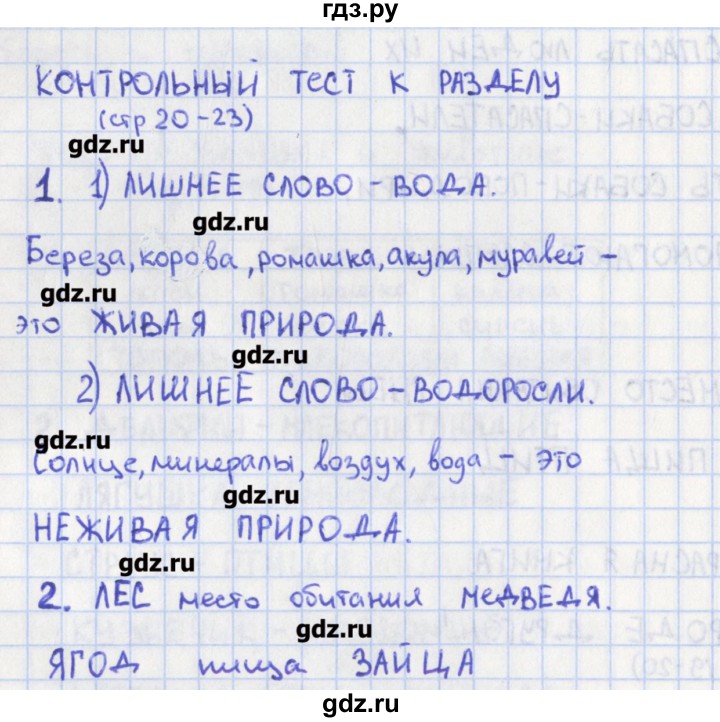 гдз.ру
КОНТРОЛЬНЫЙ ТЕСТ К РАЗДЕЛУ
(стр 20-23)
gdz.ru
1. 1) ЛИШНЕЕ СЛОВО - ВОДА.
gdz.ru
Береза, корова, ромашка, акула, муравей -
gdz.ru
это ЖИВАЯ ПРИРОДА.
gdz.ru
2) ЛИШНЕЕ СЛОВО - ВОДОРОСЛИ.
gdz.ru
Солнце, минералы, воздух, вода - это
gdz.ru
НЕЖИВАЯ ПРИРОДА.
gdz.ru
2. ЛЕС место обитания МЕДВЕДЯ.
gdz.ru
ЯГОД пища ЗАЙЦА
gdz.ru